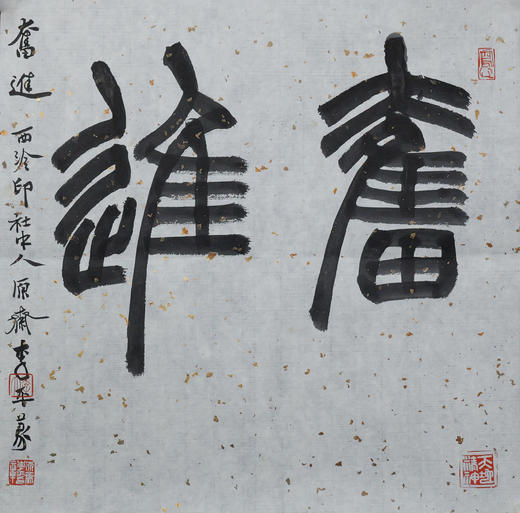 奮進
奮進 西泠印社中人原齋李平篆